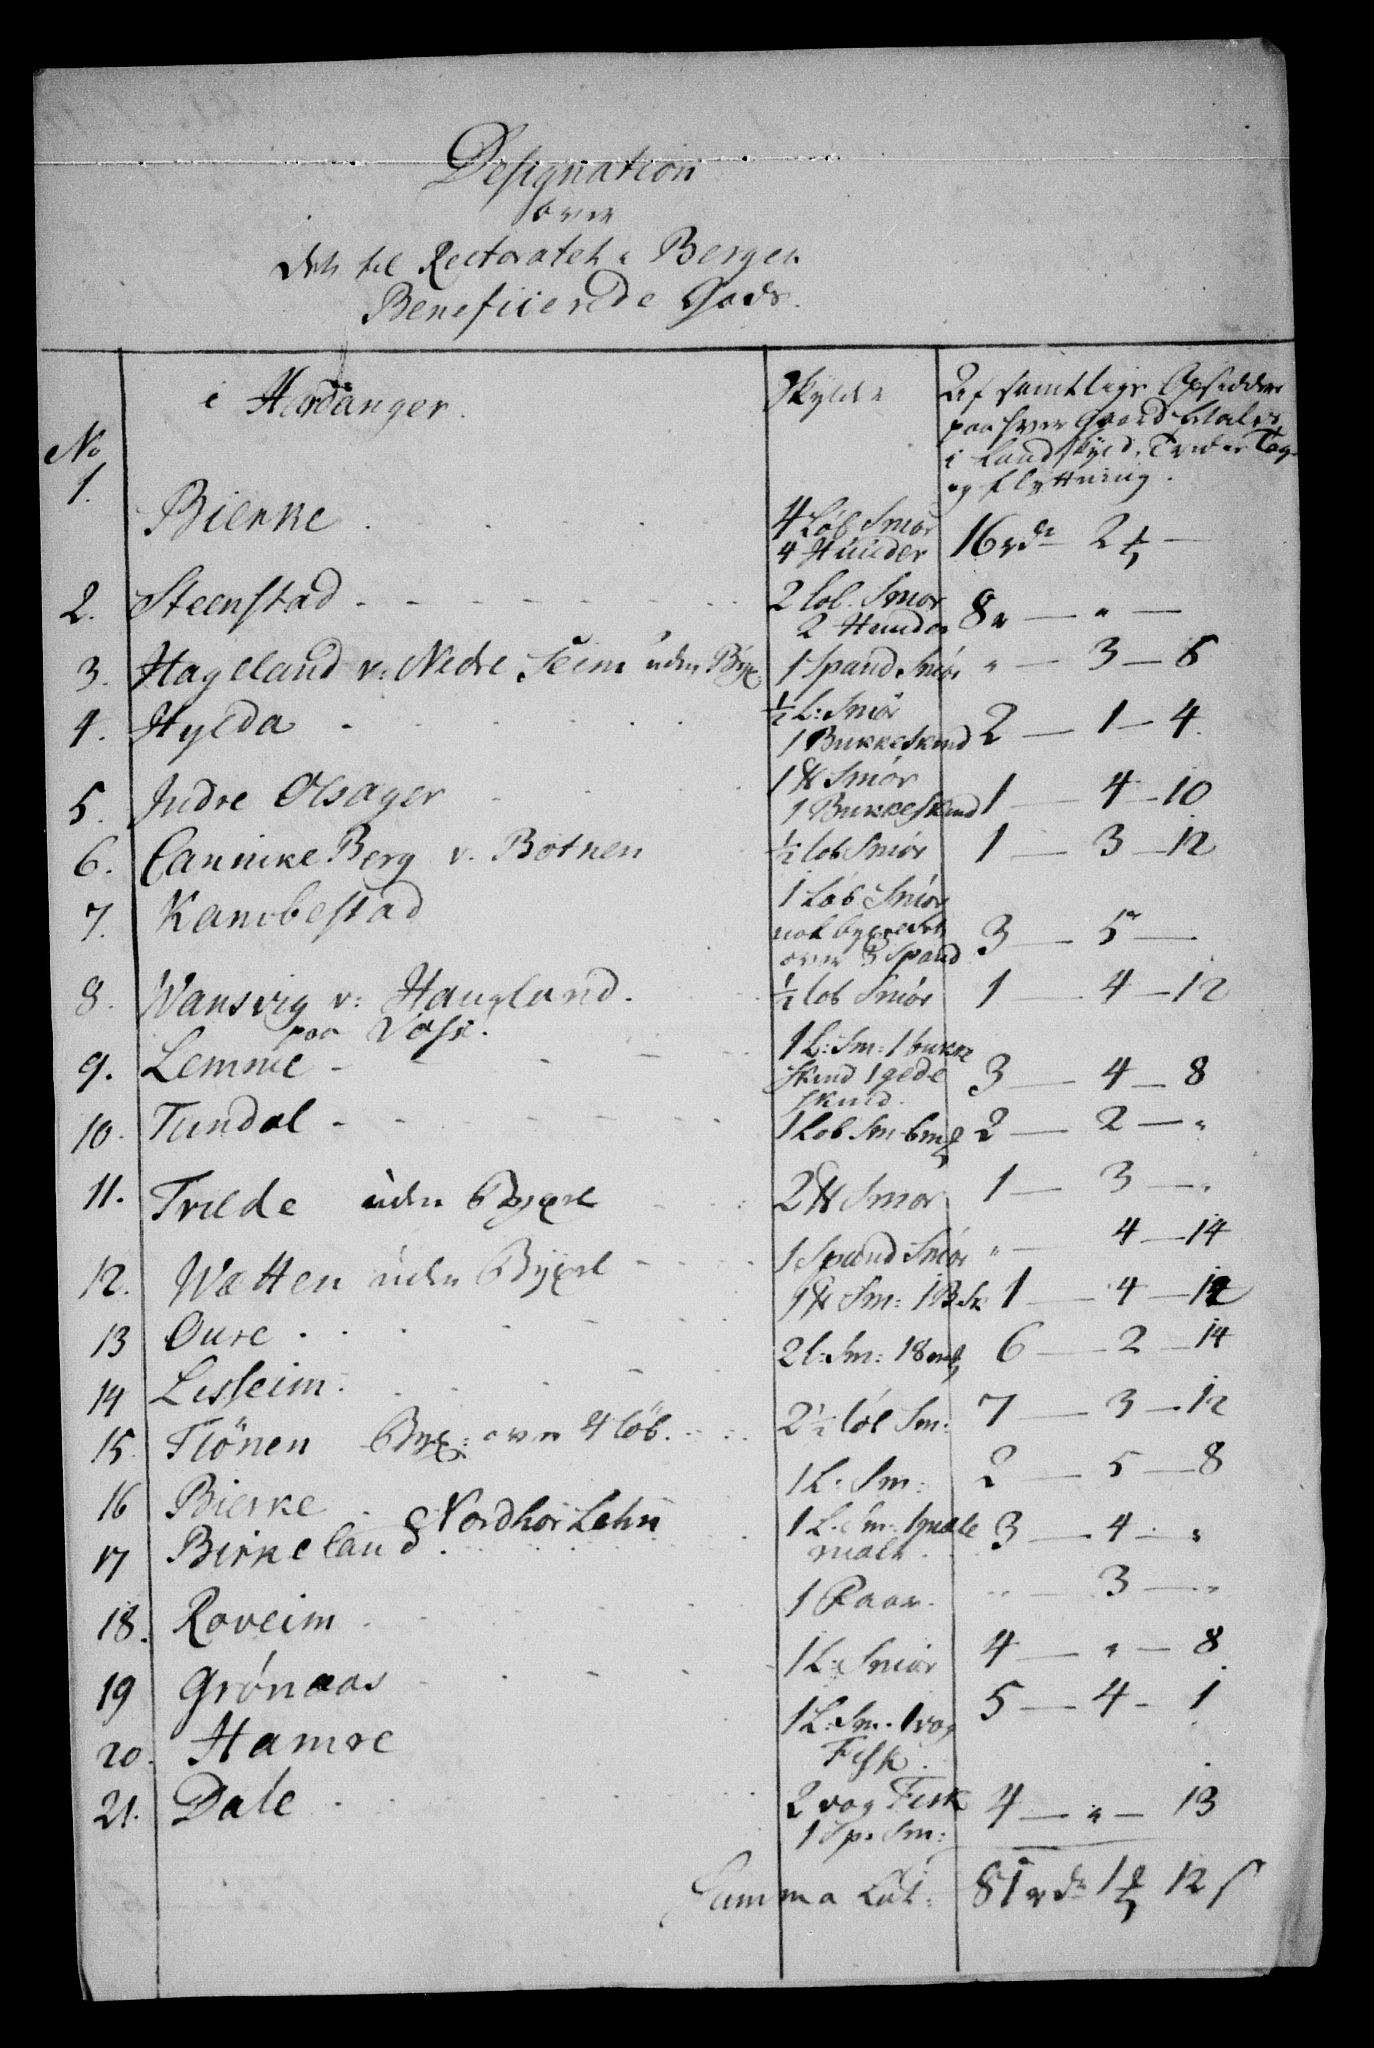 Designation
over
det til Rectoratet i Bergen
Beneficerede Gods.
No
i Hardanger.
Skyld
Af samtlige Opsiddere
paa hver Gaard betales
i Landskyld, Tredie Tag
og flyttning.
1. Bierke 4 Løb Smør 4 Huuder 16 rdr 2 ƒ —
2. Steenstad 2 løb. Smør 2 Huuder 8 — " —
3. Hageland v: Nedre Seim uden Byx 1 Spand Smør " — 3 — 8
4. Hylda ½ L: Smør 1 Bukkeskind 2 — 1 — 4.
5. Indre Olsager 1 ℔ Smør 1 Bukkeskind 1 — 4 — 10
6. Cannike Berg v. Botnen ½ løb Smør 1 — 3 — 12
7. Kambestad 1 Løb Smør bygxedet over 3 Spand 3 — 5 —
8. Wansvig v: Haugland. ½ løb Smør 1 — 4 — 12
paa Voss.
9. Lemme 1 L: Sm: 1 bukke skind 1 gede skind. 3 — 4 — 8
10. Tundal 1 Løb Sm 6 m 2 — 2 — "
11. Tvilde uden Bygxel 2 ℔ Smør 1 — 3 — "
12. Wætten uden Bygxel 1 Spand Smør " — 4 — 14
13 Oure 1 ℔ Sm: 1 B. Sk 1 — 4 — 12
14 Lisseim. 2 l: Sm: 18 m 6 — 2 — 14
15. Flönen Byx: over 4 löb. 2½ løb Sm: 7 — 3 — 12
16 Bierke 1 L: Sm: 2 — 5 — 8
Nordhor Lehn
17 Birkeland 1 L. Sm: malt 3 — 4 — "
18. Roveim 1 Paar. " — 3 — "
19 Grønaas 1 L: Smör 4 — " — 8
20. Hamre 1 L: Sm. 1 vog Fisk. 5 — 4 - 1
21. Dale 2 vog Fisk 1 Sp: Sm: 4 — " — 13
Summa Lat: 81 rdr 1 ƒ 12 s